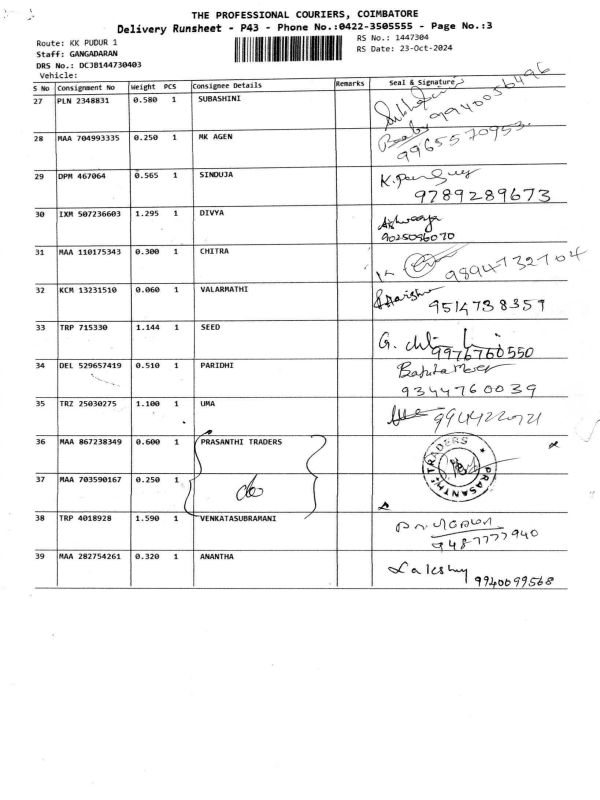 THE PROFESSIONAL COURIERS, COIMBATORE
Delivery Runsheet - P43 - Phone No.:0422-3505555 - Page No.:3
Route: KK PUDUR 1
RS No.: 1447304
Staff: GANGADARAN
RS Date: 23-Oct-2024
DRS No.: DCJB144730403
Vehicle:
S No Consignment No Weight PCS Consignee Details Remarks Seal & Signature
27 PLN 2348831 0.580 1 SUBASHINI 9940056496
28 MAA 704993335 0.250 1 MK AGEN 9965570953
29 DPM 467064 0.565 1 SINDUJA 9789289673
30 IXM 507236603 1.295 1 DIVYA 9025096070
31 MAA 110175343 0.300 1 CHITRA 9894732704
32 KCM 13231510 0.060 1 VALARMATHI 9514738359
33 TRP 715330 1.144 1 SEED 9976760550
34 DEL 529657419 0.510 1 PARIDHI 9344760039
35 TRZ 25030275 1.100 1 UMA
36 MAA 867238349 0.600 1 PRASANTHI TRADERS PRASANTHI TRADERS
37 MAA 703590167 0.250 1
38 TRP 4018928 1.590 1 VENKATASUBRAMANI 9487777940
39 MAA 282754261 0.320 1 ANANTHA Lakshmy 9940099568